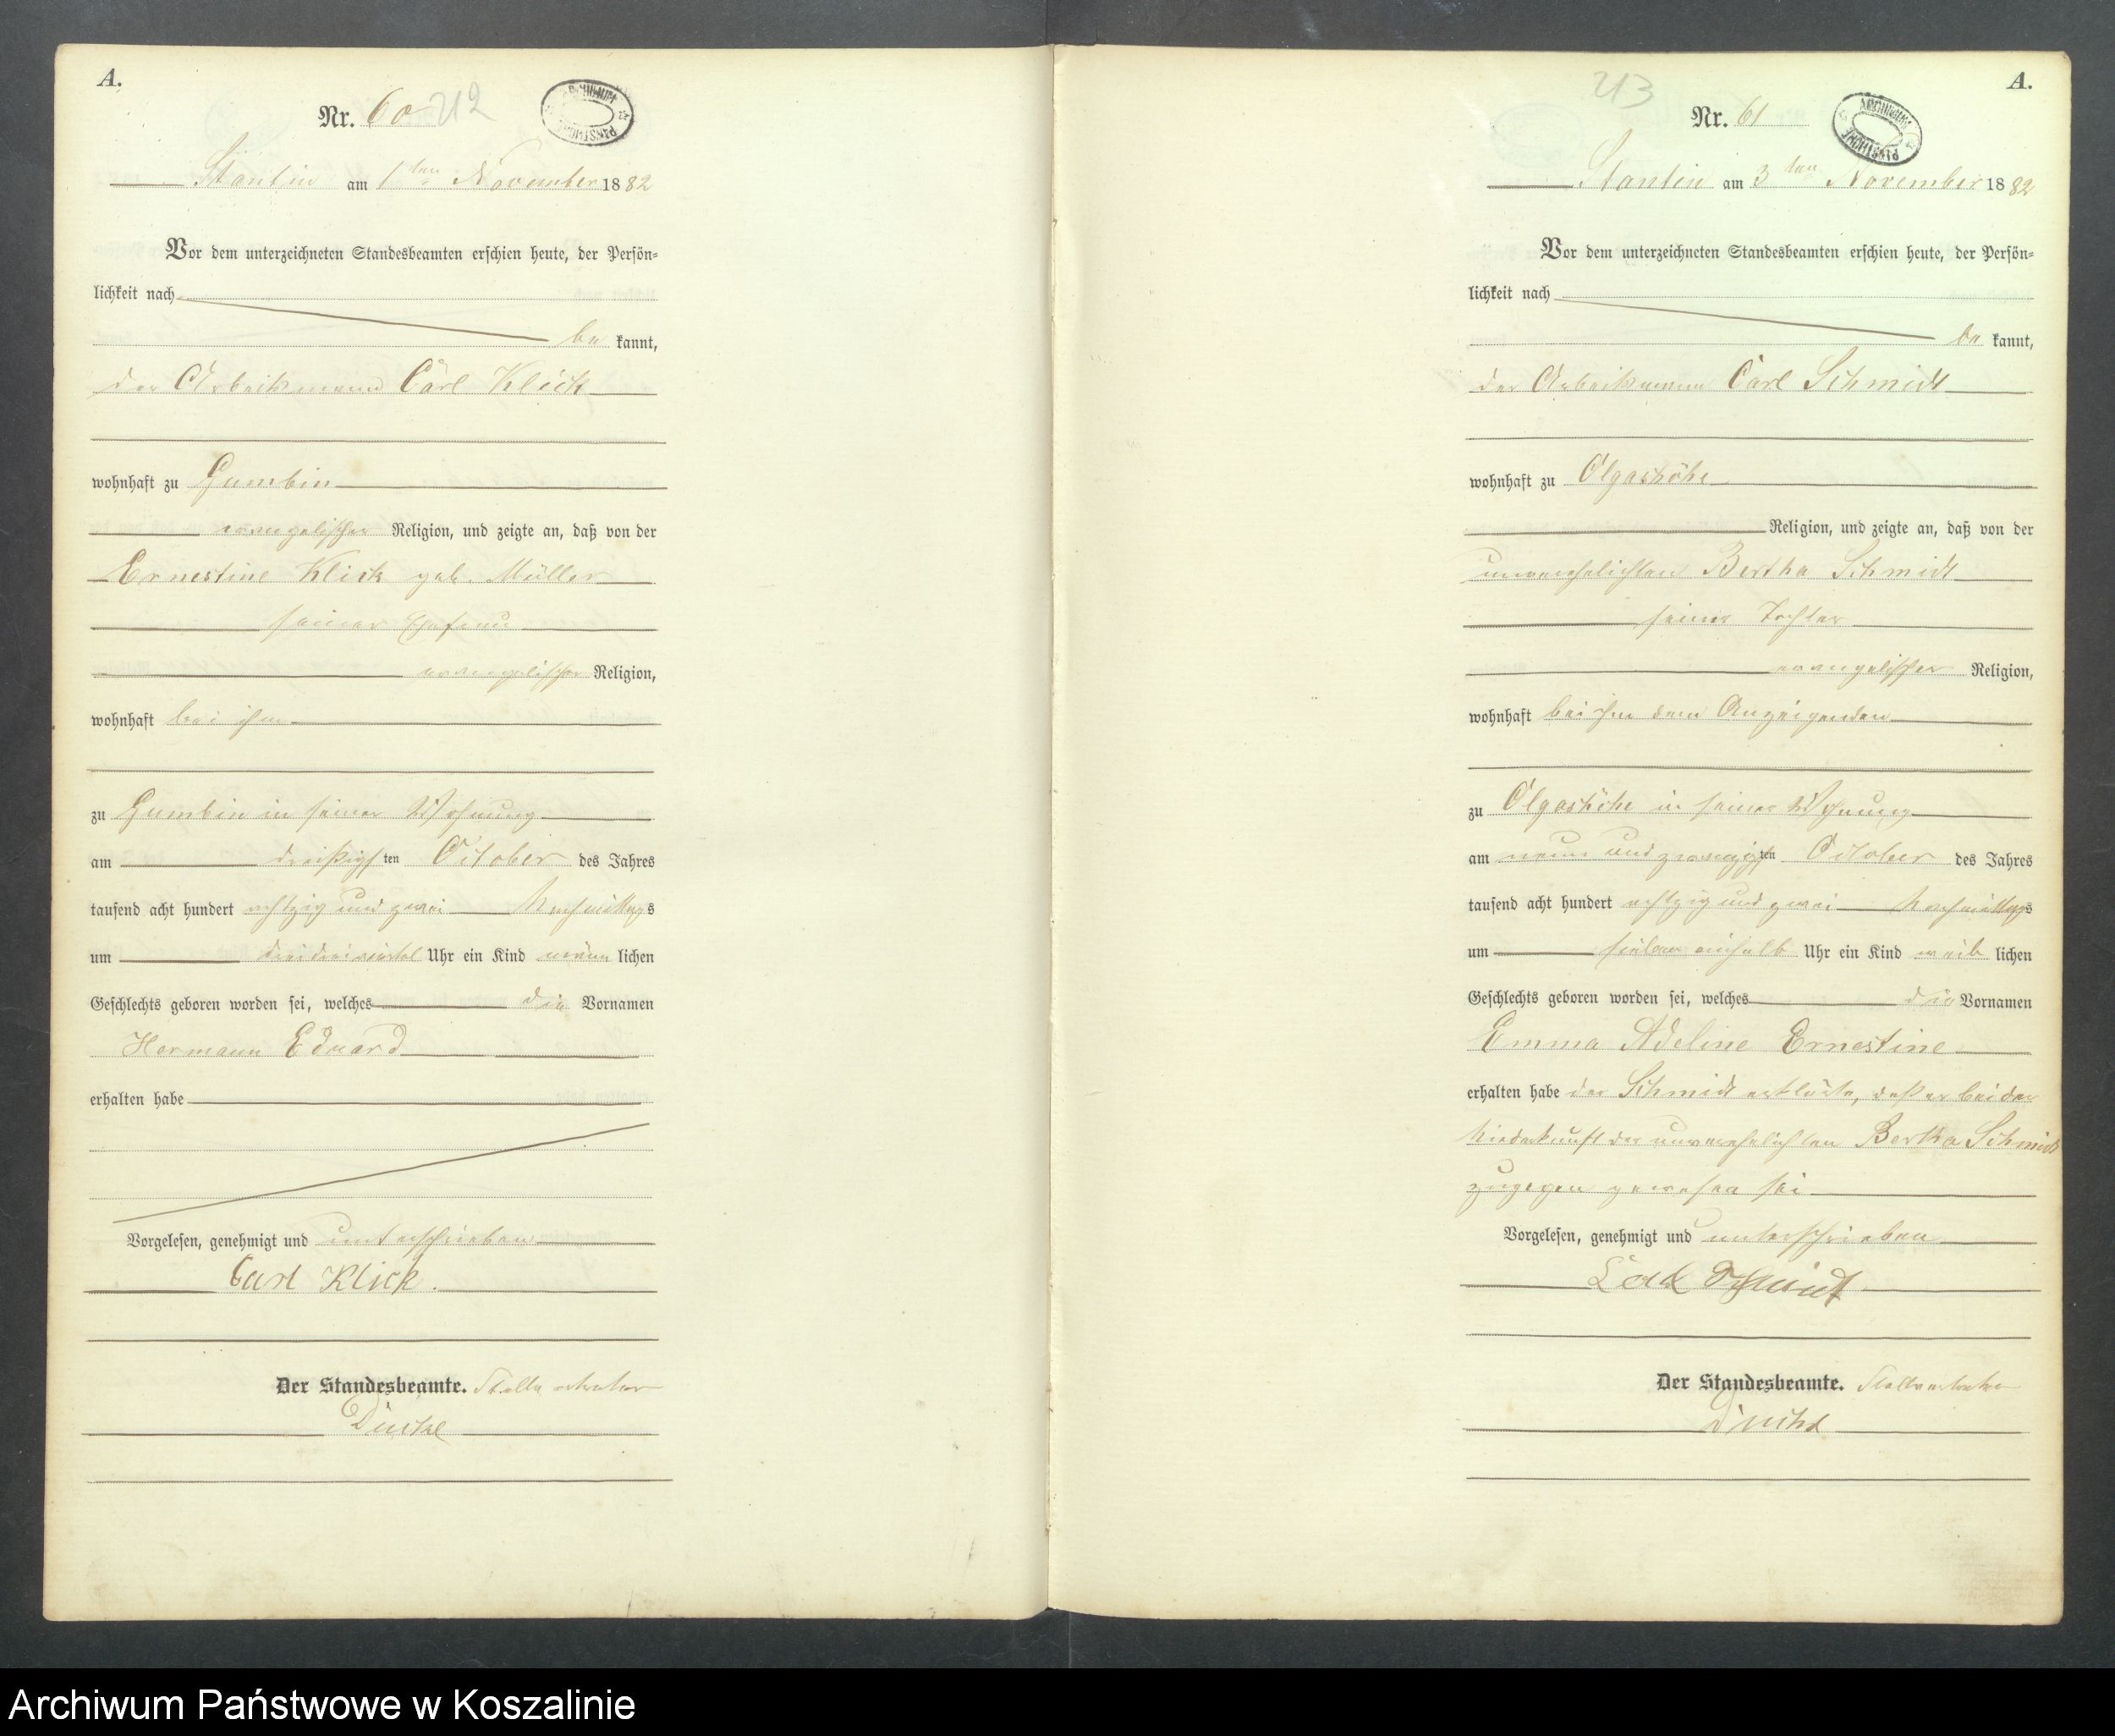 A.
Nr. 60 212
ARCHIWUM PAŃSTWOWE
Stantin am 1ten November 1882
Vor dem unterzeichneten Standesbeamten erschien heute, der Persön-
lichkeit nach
be kannt,
der Arbeitsmann Carl Klick
wohnhaft zu Gumbin
evangelischer Religion, und zeigte an, daß von der
Ernestine Klick geb. Müller
seiner Ehefrau
evangelischer Religion,
wohnhaft bei ihm
zu Gumbin in seiner Wohnung
am dreißigsten October des Jahres
tausend acht hundert achtzig und zwei Nachmittags
um drei dreiviertel Uhr ein Kind männ lichen
Geschlechts geboren worden sei, welches die Vornamen
Hermann Eduard
erhalten habe
Vorgelesen, genehmigt und unterschrieben
Carl Klick.
Der Standesbeamte. Stellvertreter
A.
213
Nr. 61
ARCHIWUM PAŃSTWOWE
Stantin am 3ten November 1882
Vor dem unterzeichneten Standesbeamten erschien heute, der Persön-
lichkeit nach
be kannt,
der Arbeitsmann Carl Schmidt
wohnhaft zu Olgashöhe
Religion, und zeigte an, daß von der
unverehelichten Bertha Schmidt
seiner Tochter
evangelischer Religion,
wohnhaft bei ihm dem Anzeigenden
zu Olgashöhe in seiner Wohnung
am neun und zwanzigsten October des Jahres
tausend acht hundert achtzig und zwei Nachmittags
um sieben einhalb Uhr ein Kind weib lichen
Geschlechts geboren worden sei, welches die Vornamen
Emma Adeline Ernestine
erhalten habe der Schmidt erklärte, daß er bei der
Niederkunft der unverehelichten Bertha Schmidt
zugegen gewesen sei
Vorgelesen, genehmigt und unterschrieben
Carl Schmidt
Der Standesbeamte. Stellvertreter
Archiwum Państwowe w Koszalinie